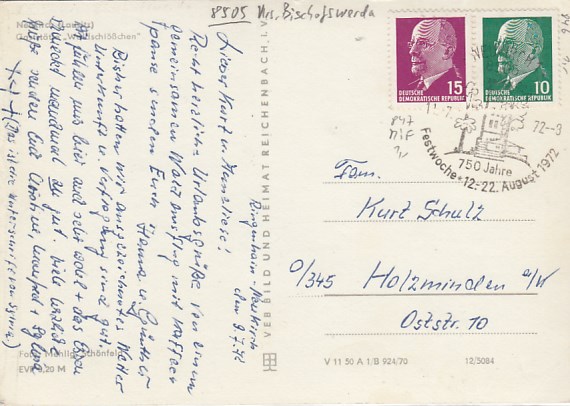 8505 Krs. Bischofswerda
Neukirch (Lausitz)
Gaststätte "Waldschlößchen"
Ringenhain-Neukirch
den 9.7.72
Liebe Kurt u. Hannelore!
Recht herzliche Urlaubsgrüße von einem
gemeinsamen Waldausflug mit Kaffee-
pause senden Euch Hanna u. Günther
Bisher hatten wir ausgezeichnetes Wetter
Unterkunft u. Verpflegung sind gut.
Wir fühlen uns hier auch sehr wohl + das Essen
schmeckt manchmal zu gut. Viele herzliche
Grüße senden Euch Christine, Manfred + Sylvia
(Das ist die Unterschrift von Sylvia.)
Foto: Mehlig, Schönfeld
EVP 0,20 M
VEB BILD UND HEIMAT REICHENBACH I. V.
V 11 50 A 1/B 924/70
12/5084
15
DEUTSCHE
DEMOKRATISCHE REPUBLIK
10
DEUTSCHE
DEMOKRATISCHE REPUBLIK
72-9
750 Jahre
Festwoche 12.-22. August 1972
846
847
MiF
Fam.
Kurt Schulz
D/345 Holzminden a/W
Oststr. 10